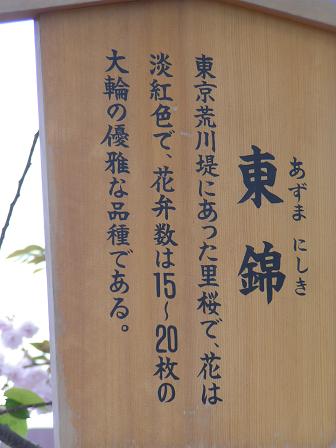 あずま にしき
東錦
東京荒川堤にあった里桜で、花は
淡紅色で、花弁数は15～20枚の
大輪の優雅な品種である。